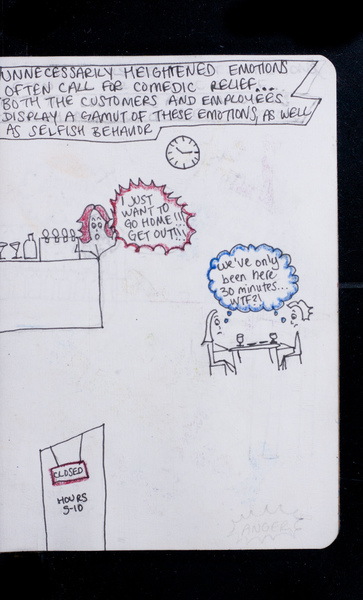 UNNECESSARILY HEIGHTENED EMOTIONS
OFTEN CALL FOR COMEDIC RELIEF...
BOTH THE CUSTOMERS AND EMPLOYEES
DISPLAY A GAMUT OF THESE EMOTIONS, AS WELL
AS SELFISH BEHAVIOR
I JUST
WANT TO
GO HOME!!!
GET OUT!!!
we've only
been here
30 minutes...
WTF?!
CLOSED
HOURS
5-10
ANGER